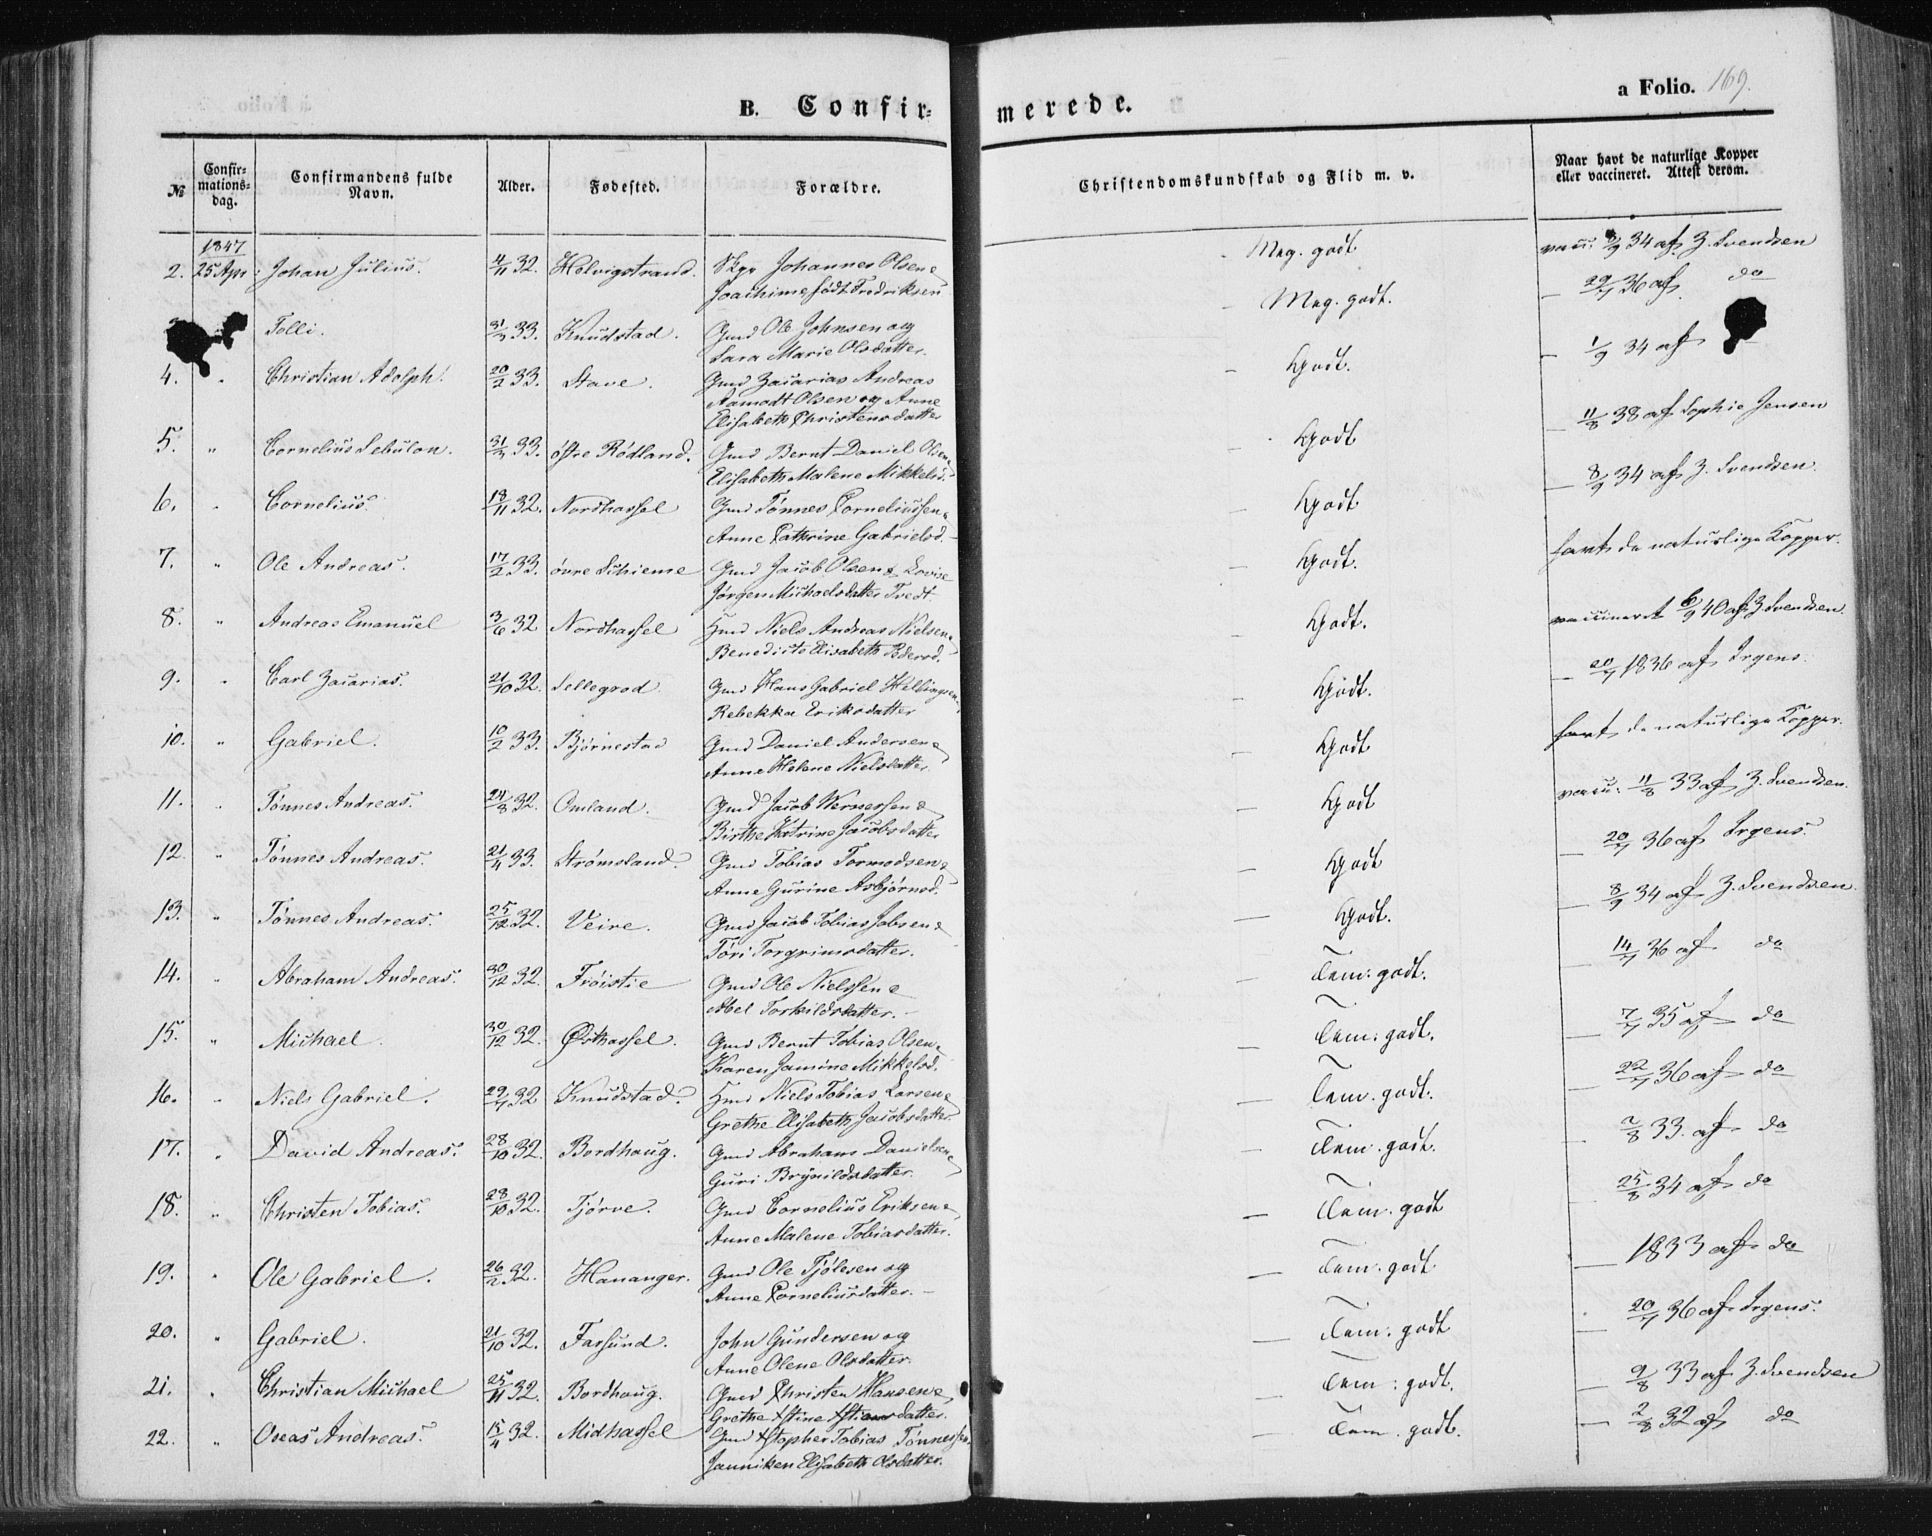 B. Confir-
merede.
a Folio. 169.
№
Confir-
mations-
dag.
Confirmandens fulde
Navn.
Alder.
Fødested.
Forældre.
Christendomskundskab og Flid m. v.
Naar havt de naturlige Kopper
eller vaccineret. Attest derom.
1847
2. 25 Apr: Johan Julius. 4/11 32. Helvigstrand. Skpr Johannes Olsen &
Joachime født Fredriksen
Meg. godt vacc: 34 af Z. Svendsen
Telli. 31/3 33. Knudstad. Gmd Ole Johnsen og
Sara Marie Olsdatter.
Meg. godt. — 29/7 36 af do
4. " Christian Adolph. 20/2 33. Stave. Gmd Zacarias Andreas
Aamodt Olsen og Anne
Elisabeth Christensdatter
Godt. — 1/9 34 af
5. " Cornelius Sebulon. 31/3 33. østre Rødland. Gmd Bernt Daniel Olsen &
Elisabeth Malene Mikkelsd.
Godt — 11/8 38 af Sophie Jensen
6. " Cornelius. 18/11 32. Nordhassel Gmd Tønnes Corneliussen &
Anne Cathrine Gabrielsd. —
Godt — 8/9 34 af Z. Svendsen.
7. " Ole Andreas. 17/2 33. øvre Skieme Gmd Jacob Olsen & Lovise
Jørgen Michaelsdatter Tvedt
Godt. havt de naturlige Kopper.
8. " Andreas Emanuel 3/6 32 Nordhassel Hmd Niels Andreas Nielsen &
Benedicte Elisabeth Pedersd.
Godt. vaccineret 6/9 40 af Z. Svendsen.
9. " Carl Zacarias. 21/10 32. Sellegrod. Gmd Hans Gabriel Hellingsen &
Rebekka Eriksdatter
Godt. — 20/7 1836 af Irgens.
10. " Gabriel. 10/2 33. Bjørnestad Gmd Daniel Andersen &
Anne Helene Nielsdatter.
Godt havt de naturlige Kopper.
11. " Tønnes Andreas. 24/8 32. Omland. Gmd Jacob Wernersen &
Birthe Katrine Jacobsdatter
Godt vacc: 11/8 33 af Z. Svendsen.
12. " Tønnes Andreas. 21/4 33. Strømsland. Gmd Tobias Tormodsen &
Anne Gurine Asbjørnsd.
Godt — 20/7 36 af Irgens.
13. " Tønnes Andreas. 25/12 32. Veire. Gmd Jacob Tobias Jobsen &
Tøri Torgrimsdatter.
Godt. — 8/9 34 af Z. Svendsen.
14. " Abraham Andreas. 30/12 32. Frøistie Gmd Ole Nielssen &
Abel Torkildsdatter. —
Tem: godt. — 14/7 36 af do
15. " Michael. 30/12 32. Østhassel. Gmd Bernt Tobias Olsen &
Karen Jamine Mikkelsd.
Tem: godt. — 7/7 35 af do
16. " Niels Gabriel. 29/7 32 Knudstad. Hmd Niels Tobias Larsen &
Grethe Elisabeth Jacobsdatter.
Tem. godt. — 22/7 36 af do
17. " David Andreas. 28/10 32. Bordhaug. Gmd Abraham Danielsen &
Guri Brynildsdatter.
Tem. godt. — 2/8 33. af do
18. " Christen Tobias. 28/10 32. Tjørve. Gmd Cornelius Eriksen &
Anne Malene Tobiasdatter.
Tem. godt — 25/8 34 af do
19. " Ole Gabriel. 26/2 32. Hananger. Gmd Ole Tjølesen og
Anne Corneliusdatter. —
Tem. godt 1833 af do
20. " Gabriel. 21/10 32. Farsund. John Gundersen og
Anne Olene Olsdatter.
Tem: godt 20/7 36 af Irgens.
21. " Christian Michael 25/11 32. Bordhaug. Gmd Christen Hansen &
Grethe Xstine Xstiansdatter.
Tem: godt. — 9/8 33 af Z. Svendsen
22. " Oseas Andreas. 15/4 32. Midhassel Gmd Xstopher Tobias Tønnessen,
Janniken Elisabeth Olsdatter.
Tem. godt. — 2/8 32 af do